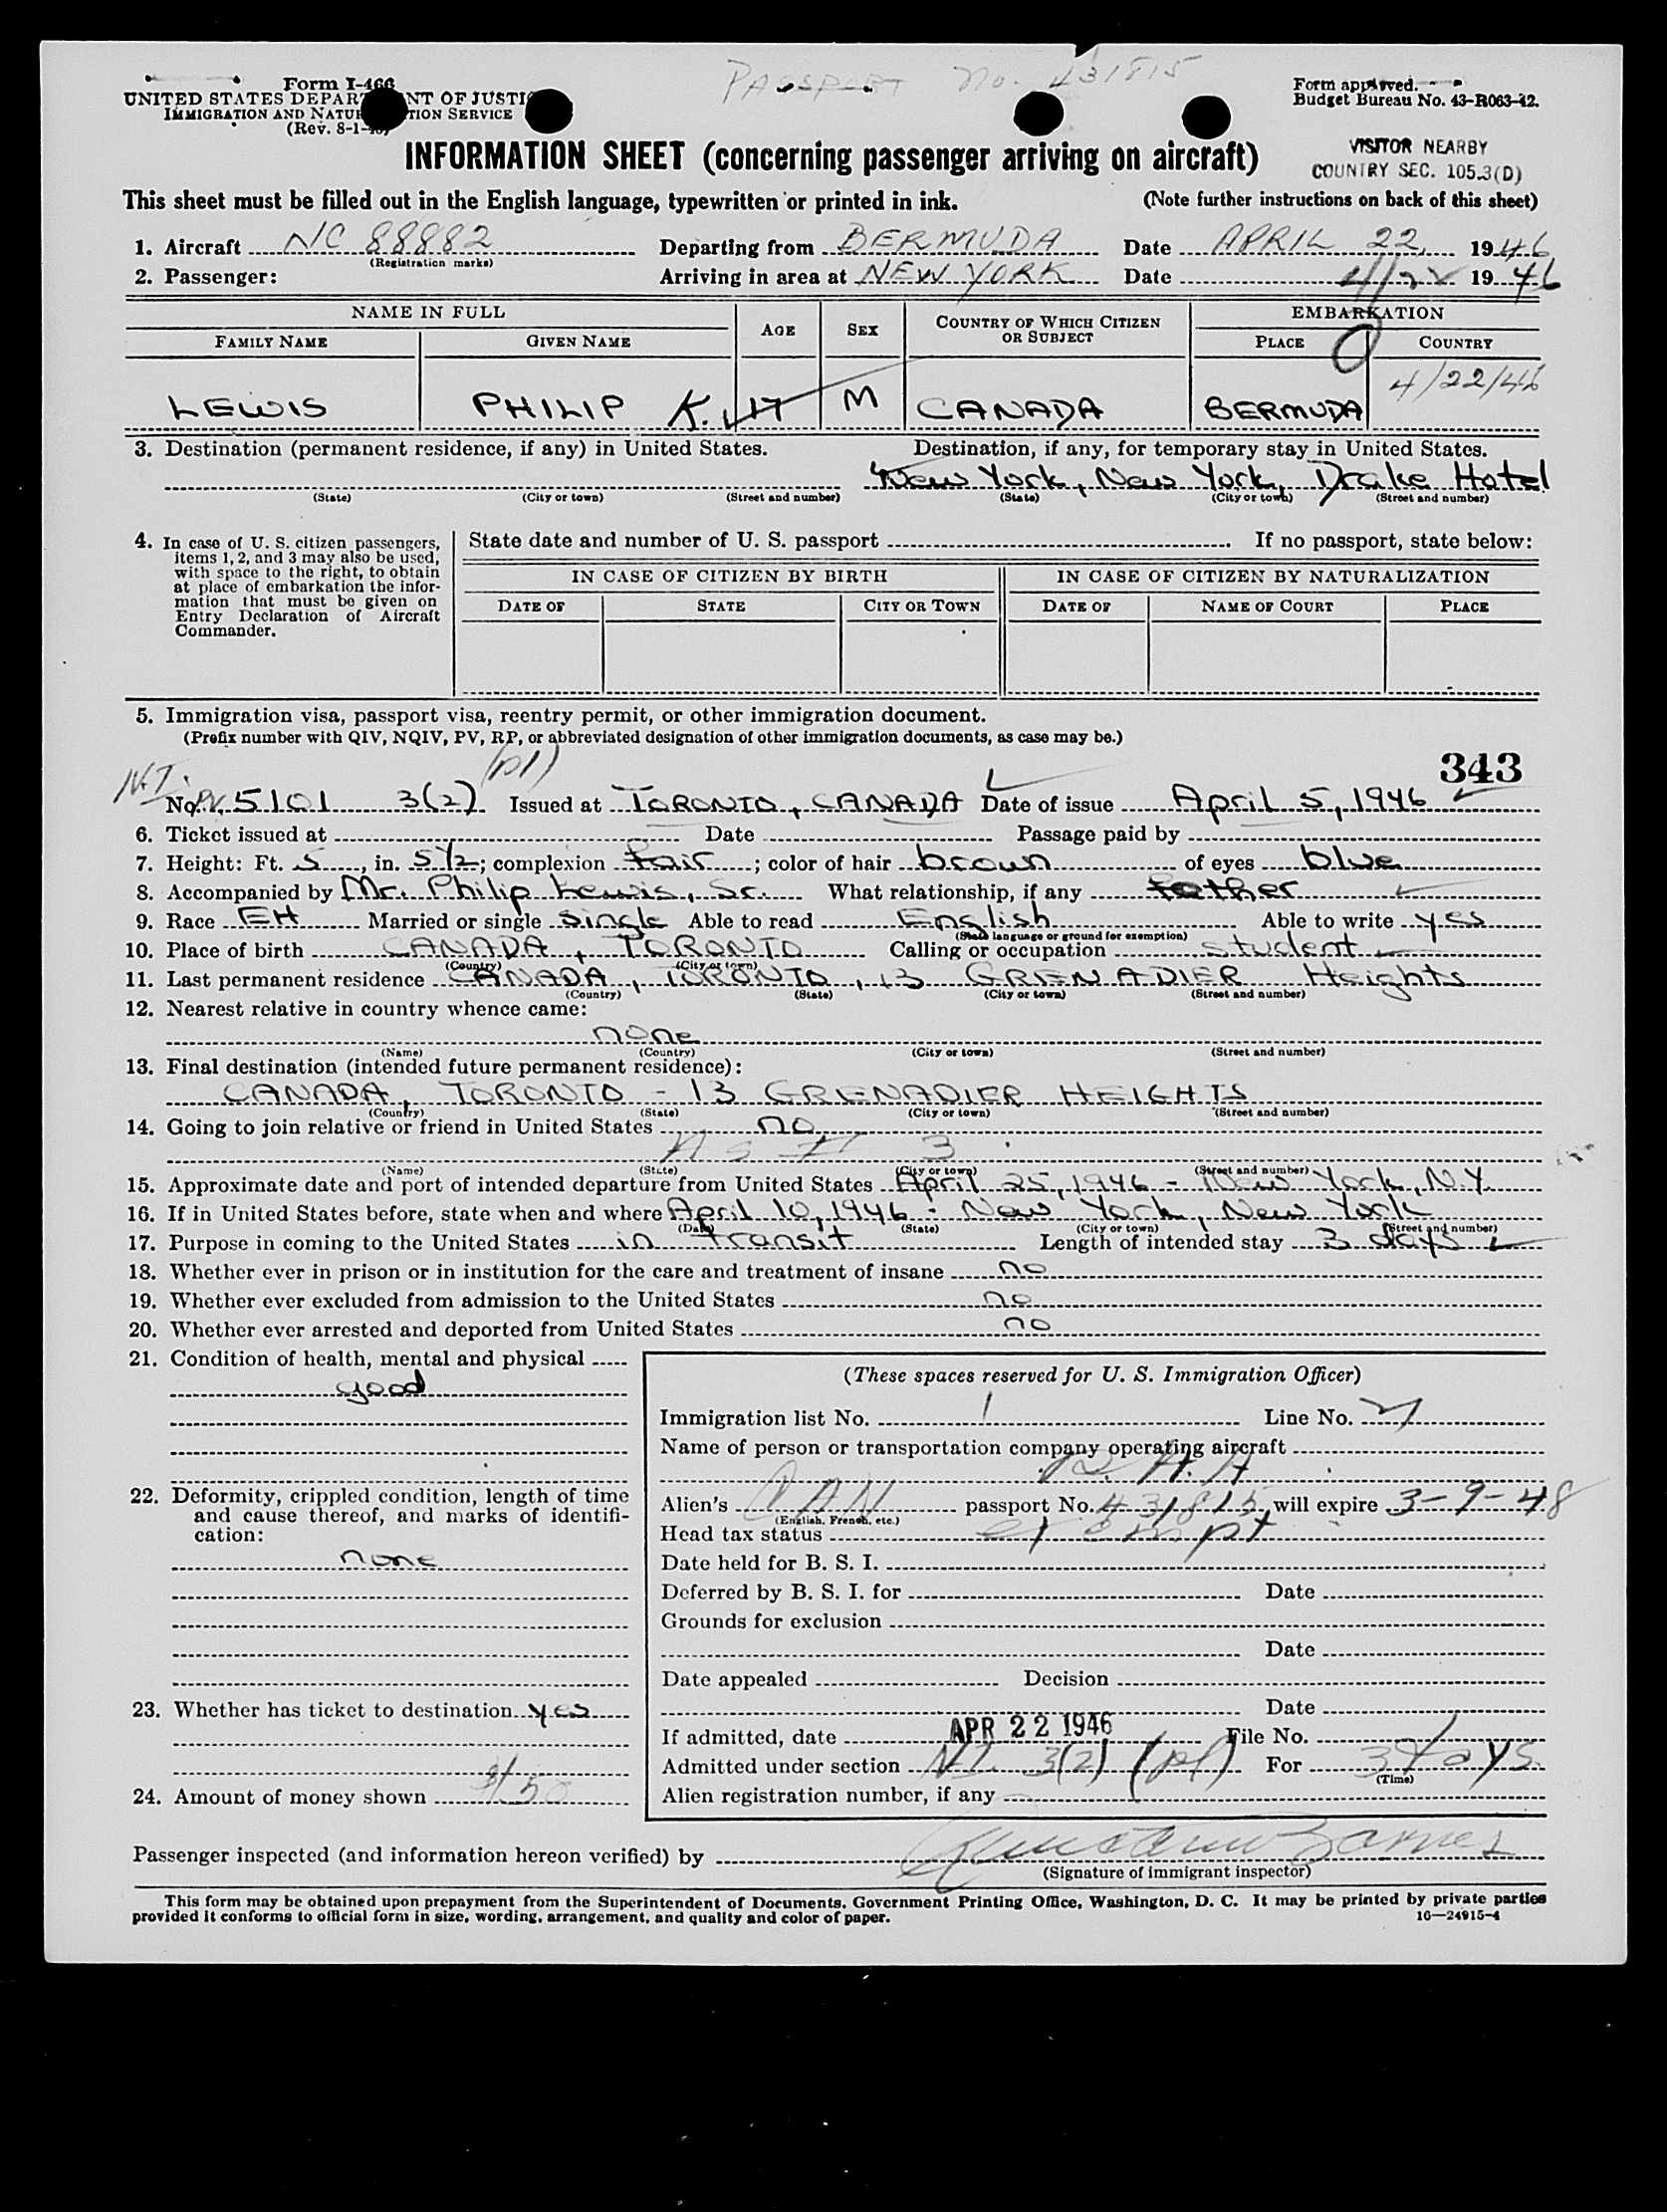 PASSPORT No. 431815
Form I-466
UNITED STATES DEPAR NT OF JUSTI
IMMIGRATION AND NATUR TION SERVICE
(Rev. 8-1-
Form approved.
Budget Bureau No. 43-R063-42.
VISITOR NEARBY
COUNTRY SEC. 105.3(D)
INFORMATION SHEET (concerning passenger arriving on aircraft)
This sheet must be filled out in the English language, typewritten or printed in ink. (Note further instructions on back of this sheet)
1. Aircraft NC 88882 Departing from BERMUDA Date APRIL 22, 1946
(Registration marks)
2. Passenger: Arriving in area at NEW YORK Date 4/22 1946
NAME IN FULL AGE SEX COUNTRY OF WHICH CITIZEN OR SUBJECT EMBARKATION
FAMILY NAME GIVEN NAME PLACE COUNTRY
4/22/46
LEWIS PHILIP K. 17 M CANADA BERMUDA
3. Destination (permanent residence, if any) in United States. Destination, if any, for temporary stay in United States.
New York, New York, Drake Hotel
(State) (City or town) (Street and number) (State) (City or town) (Street and number)
4. In case of U. S. citizen passengers, items 1, 2, and 3 may also be used, with space to the right, to obtain at place of embarkation the information that must be given on Entry Declaration of Aircraft Commander.
State date and number of U. S. passport If no passport, state below:
IN CASE OF CITIZEN BY BIRTH IN CASE OF CITIZEN BY NATURALIZATION
DATE OF STATE CITY OR TOWN DATE OF NAME OF COURT PLACE
5. Immigration visa, passport visa, reentry permit, or other immigration document.
(Prefix number with QIV, NQIV, PV, RP, or abbreviated designation of other immigration documents, as case may be.)
343
N.I. (pl)
No. PV. 5101 3(2) Issued at TORONTO, CANADA Date of issue April 5, 1946
6. Ticket issued at Date Passage paid by
7. Height: Ft. 5, in. 5 1/2; complexion fair; color of hair brown of eyes blue
8. Accompanied by Mr. Philip Lewis, Sr. What relationship, if any father
9. Race EH Married or single single Able to read English Able to write yes
(State language or ground for exemption)
10. Place of birth CANADA, TORONTO Calling or occupation student
(Country) (City or town)
11. Last permanent residence CANADA, TORONTO, 13 GRENADIER Heights
(Country) (State) (City or town) (Street and number)
12. Nearest relative in country whence came:
none
(Name) (Country) (City or town) (Street and number)
13. Final destination (intended future permanent residence):
CANADA, TORONTO - 13 GRENADIER HEIGHTS
(Country) (State) (City or town) (Street and number)
14. Going to join relative or friend in United States no
(Name) (State) (City or town) (Street and number)
15. Approximate date and port of intended departure from United States April 25, 1946 - New York, N.Y.
16. If in United States before, state when and where April 10, 1946 : New York, New York
(Date) (State) (City or town) (Street and number)
17. Purpose in coming to the United States in transit Length of intended stay 3 days
18. Whether ever in prison or in institution for the care and treatment of insane no
19. Whether ever excluded from admission to the United States no
20. Whether ever arrested and deported from United States no
21. Condition of health, mental and physical
good
22. Deformity, crippled condition, length of time and cause thereof, and marks of identification:
none
23. Whether has ticket to destination yes
24. Amount of money shown $150
(These spaces reserved for U. S. Immigration Officer)
Immigration list No. 1 Line No.
Name of person or transportation company operating aircraft
P. A. A
Alien's CAN passport No. 431815 will expire 3-9-48
(English, French, etc.)
Head tax status exempt
Date held for B. S. I.
Deferred by B. S. I. for Date
Grounds for exclusion
Date
Date appealed Decision
Date
If admitted, date APR 22 1946 File No.
Admitted under section N.I. 3(2) (pl) For 3 days.
(Time)
Alien registration number, if any
Passenger inspected (and information hereon verified) by
(Signature of immigrant inspector)
This form may be obtained upon prepayment from the Superintendent of Documents, Government Printing Office, Washington, D. C. It may be printed by private parties
provided it conforms to official form in size, wording, arrangement, and quality and color of paper. 16—24915-4